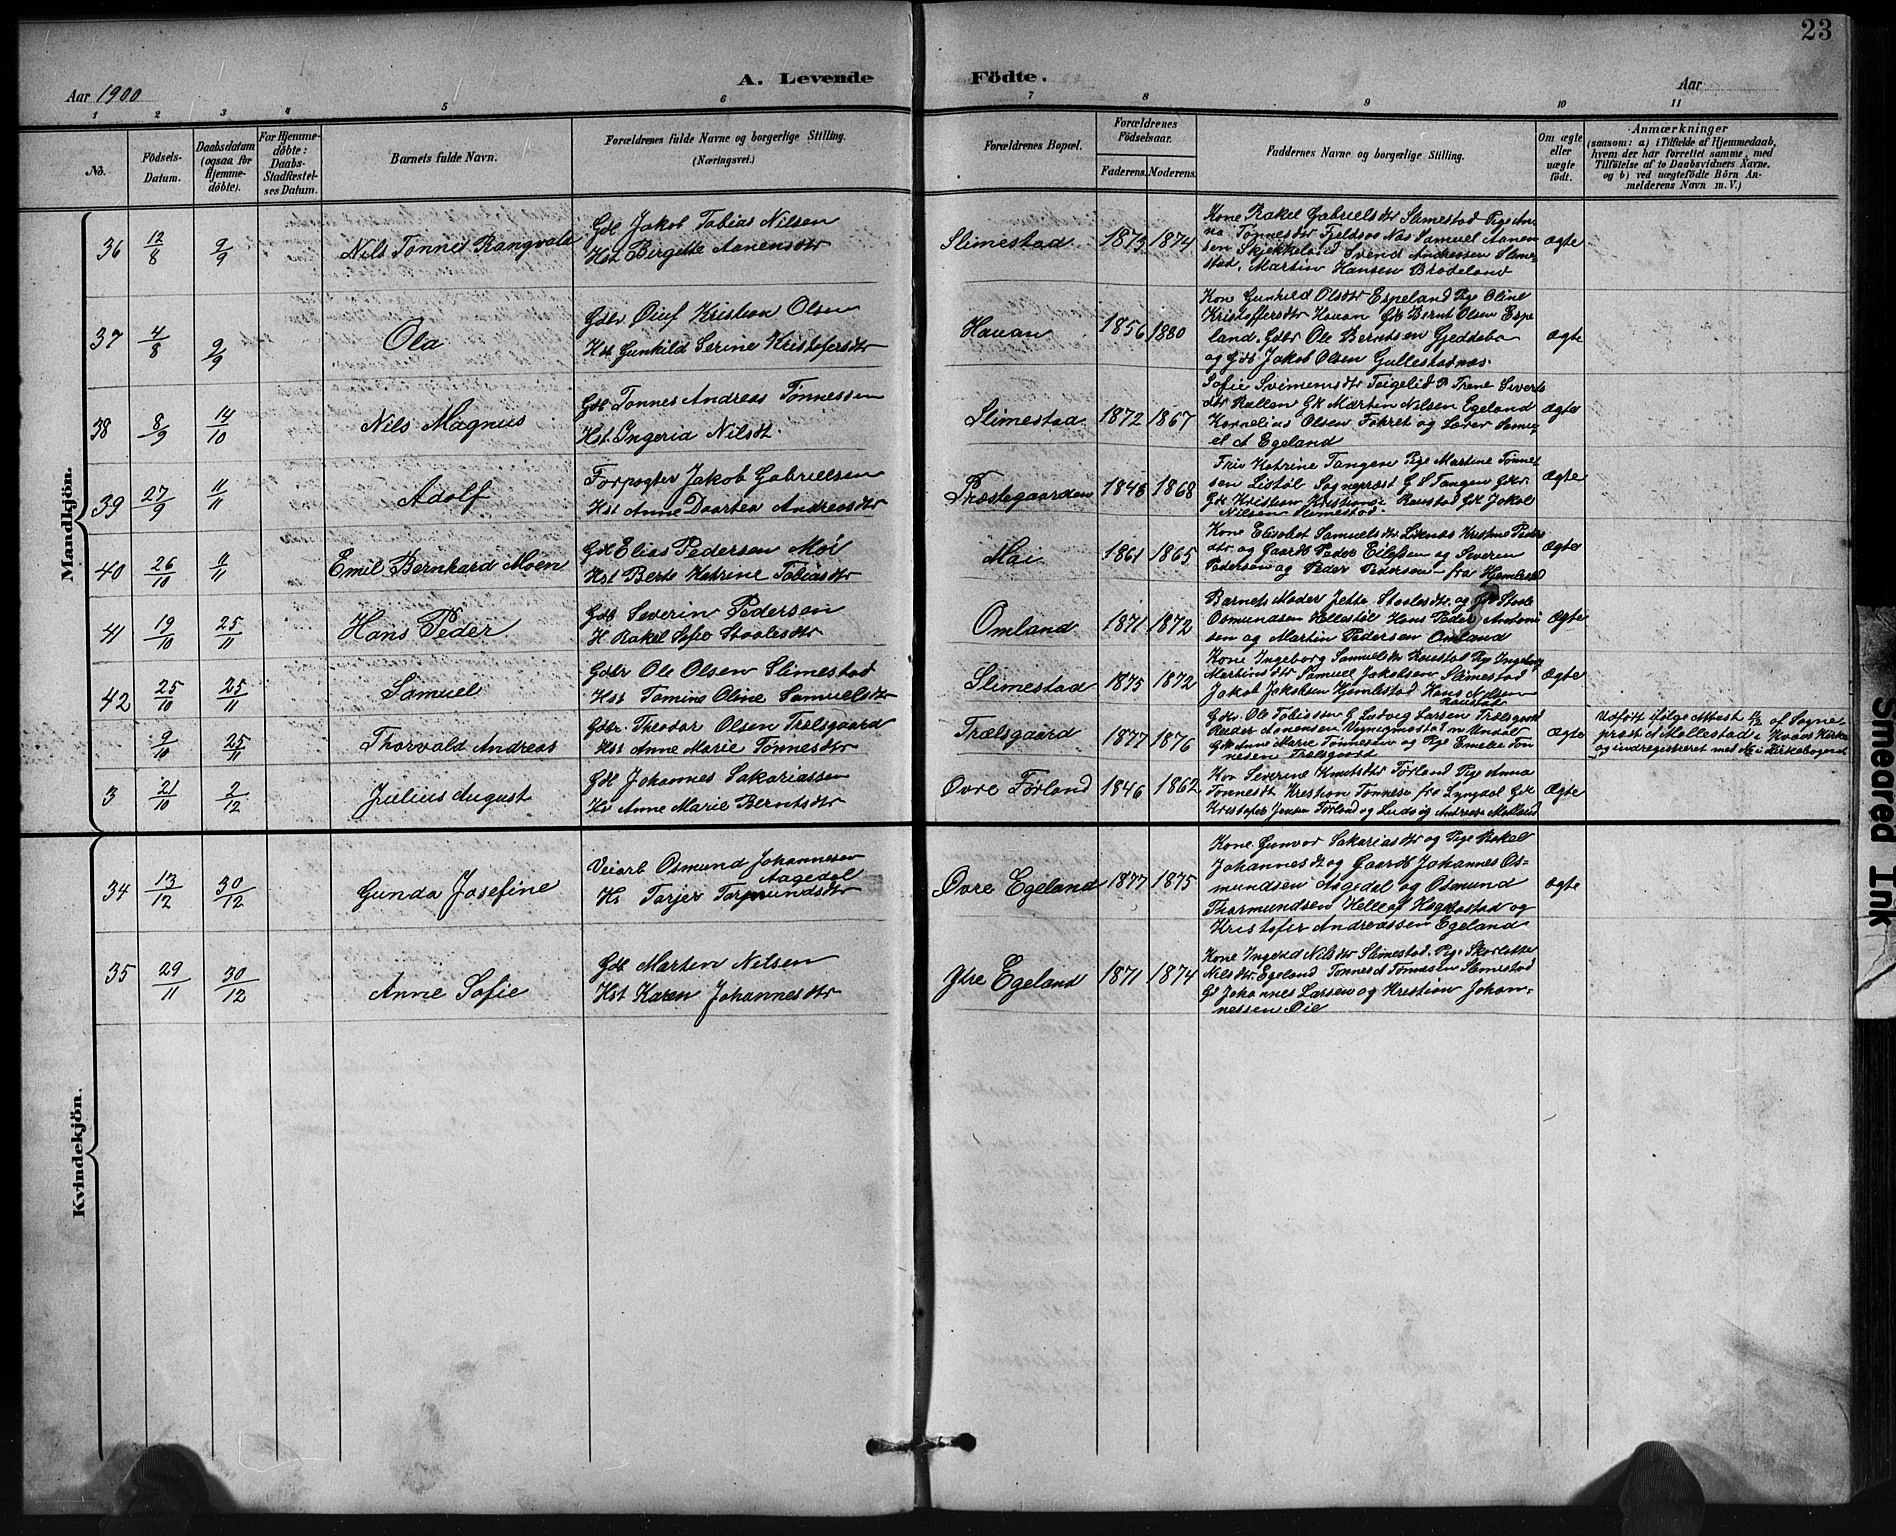 23
A. Levende Födte.
Aar 1900
Aar
1 2 3 4 5 6 7 8 9 10 11
No.
Födsels-
Datum.
Daabsdatum
(ogsaa for
Hjemme-
döbte).
For Hjemme-
döbte:
Daabs-
Stadfæstel-
ses Datum.
Barnets fulde Navn.
Forældrenes fulde Navne og borgerlige Stilling.
(Næringsvei.)
Forældrenes Bopæl.
Forældrenes
Födselsaar.
Faderens. Moderens.
Faddernes Navne og borgerlige Stilling.
Om ægte
eller
uægte
födt.
Anmærkninger
(saasom: a) i Tilfælde af Hjemmedaab,
hvem der har forrettet samme, med
Tilföielse af to Daabsvidners Navne.
og b) ved uægtefödte Börn An-
melderens Navn m. V.)
Mandkjön.
36 12/8 9/9 Nils Tønnes Rangvald
Gdb Jakob Tobias Nilsen
Hst Birgitte Aanensdtr
Slimestad 1873 1874
Kone Rakel Gabrielsdtr Slimestad Pige An-
na Tønnesdtr Fjeldsaa Nas Samuel Aanen
sen Skjekkeland Svend Andreassen Slime-
stad. Martin Hansen Brådeland
Ægte
37 4/8 9/9 Ola
Gdbr Oluf Kristian Olsen
Hst Gunhild Serine Kristofersdtr
Hauan 1856 1880
Kon Gunhild Olsdtr Espeland Pige Oline
Kristoffersdtr Hauan Gdb Bernt Olsen Espe
land. Gdbr Ole Berntsen Gjeddebo
og Gdb Jakob Olsen Gullestadnes.
Ægte
38 8/9 14/10 Nils Magnus
Gdb Tønnes Andreas Tønnessen
Hst Ingeria Nilsdt.
Slimestad 1872 1867
Sofie Teigelid P Trene Siverts
dtr Rællen Gk Martin Nilsen Egeland
Kornelius Olsen Fokret og Lærer Samu-
el A Egeland
Ægte
39 27/9 11/11 Adolf
Forpagter Jakob Gabrielsen
Hst Anne Daartea Andreasdtr
Præstegaarden 1848 1868
Fru Katrine Tangen Pige Martine Tønnes
sen Listøl Sogneprest G S Tangen Gdbr
Gdb Kristian Kristians Raustad Gk Jakob
Nilsen Slimestad.
Ægte
40 26/10 11/11 Emil Bernhard Moen
Gdb Elias Pedersen Moi
Hst Berte Katrine Tobiasdtr
Moi 1861 1865
Kone Elisabet Samuelsdtr Liknes Kristine Peders
dtr og Gaardb Peder Eilefsen og Severen
Pedersen og Peder Pedersen - fra Hjemlestad
Ægte
41 19/10 25/11 Hans Peder
Gdb Severin Pedersen
H Rakel Sofie Staalesdtr
Omland 1871 1872
Barnets Moder Jette Staalesdtr. og Gdb Staale
Osmundsen Hellestøl Hans Peder Antoni
sen og Martin Pedersen Omland
Ægte
42 25/10 25/11 Samuel
Gdbr Ole Olsen Slimestad
Hst Tomine Oline Samuelsdtr
Slimestad 1875 1872
Kone Ingeborg Samuelsdtr Raustad Pige Ingeborg
Martinsdtr Samuel Jakobsen Slimestad
Jakob Jakobsen Hjemlestad Hans Nilsen
Raustad
Ægte
9/10 25/11 Thorvald Andreas
Gdbr. Theodor Olsen Trælsgaard
Hst Anne Marie Tønnesdtr
Trælsgaard 1877 1876
Gdbr Ole Tobiassen G Ludvig Larsen Trælsgaard
Reeder Aanensen Undal
Gk Anne Marie Tønnesen og Pige Emelie Tøn
nesen Trælsgaard
Ægte
Udført ifølge Attest af Sogne-
præst A Mollestad i Kvaas Kirke
og indregistreret med No i Kirkebogen
3 21/10 2/12 Julius August
Gdb Johannes Sakariassen
Hst Anne Marie Berntsdtr
Øvre Førland 1846 1862
Kon Severine Knutsdtr Førland Pige Anna
Tønnesdt Kristian Tønnesen fra Lyngdal Gk
Kristofer Jensen Førland og Ludvig Andreas Møllend
Ægte
Kvindekjön.
34 13/12 30/12 Gunda Josefine
Veiarb Osmund Johannesen
Aagedal
Hs Tarjer Tarmundsdtr
Øvre Egeland 1877 1875
Kone Gunvor Sakariasdtr og Pige Rakel
Johannesdt og Gaardb Johannes Os-
mundsen Aagedal og Osmund
Thormundsen Helle af Hægebostad og
Kristofer Andreassen Egeland
Ægte
35 29/11 30/12 Anne Sofie
Gdb Martin Nilsen
Hst Karen Johannesdtr
Ytre Egeland 1871 1874
Kone Ingeri Nilsdtr Slimestad. Pige Skarlotte
Nilsdtr Egeland Tønnes A Tønnesen Slimestad
Gd Johannes Larsen og Kristian Johan-
nessen Øie
Smeared Ink